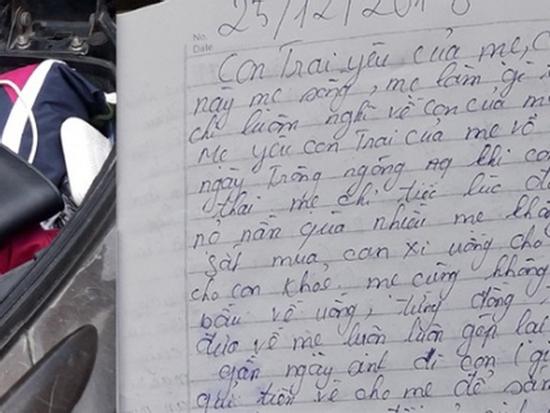 25/12/201
No.
Date
Con Trai yêu của mẹ,
này mẹ sống, mẹ làm gì
chỉ luôn nghĩ về con của m
Mẹ yêu con Trai của mẹ vô
ngày Trông ngóng khi co
thai mẹ chỉ tiếc lúc đ
nợ nần quá nhiều mẹ khô
sắt mua, can xi uống cho
cho con khoẻ. mẹ cũng không
bầu về uống, từng đồng,
đưa về mẹ luôn luôn gôn lại
gần ngày sinh đi con
gửi tiền về cho mẹ để sắm